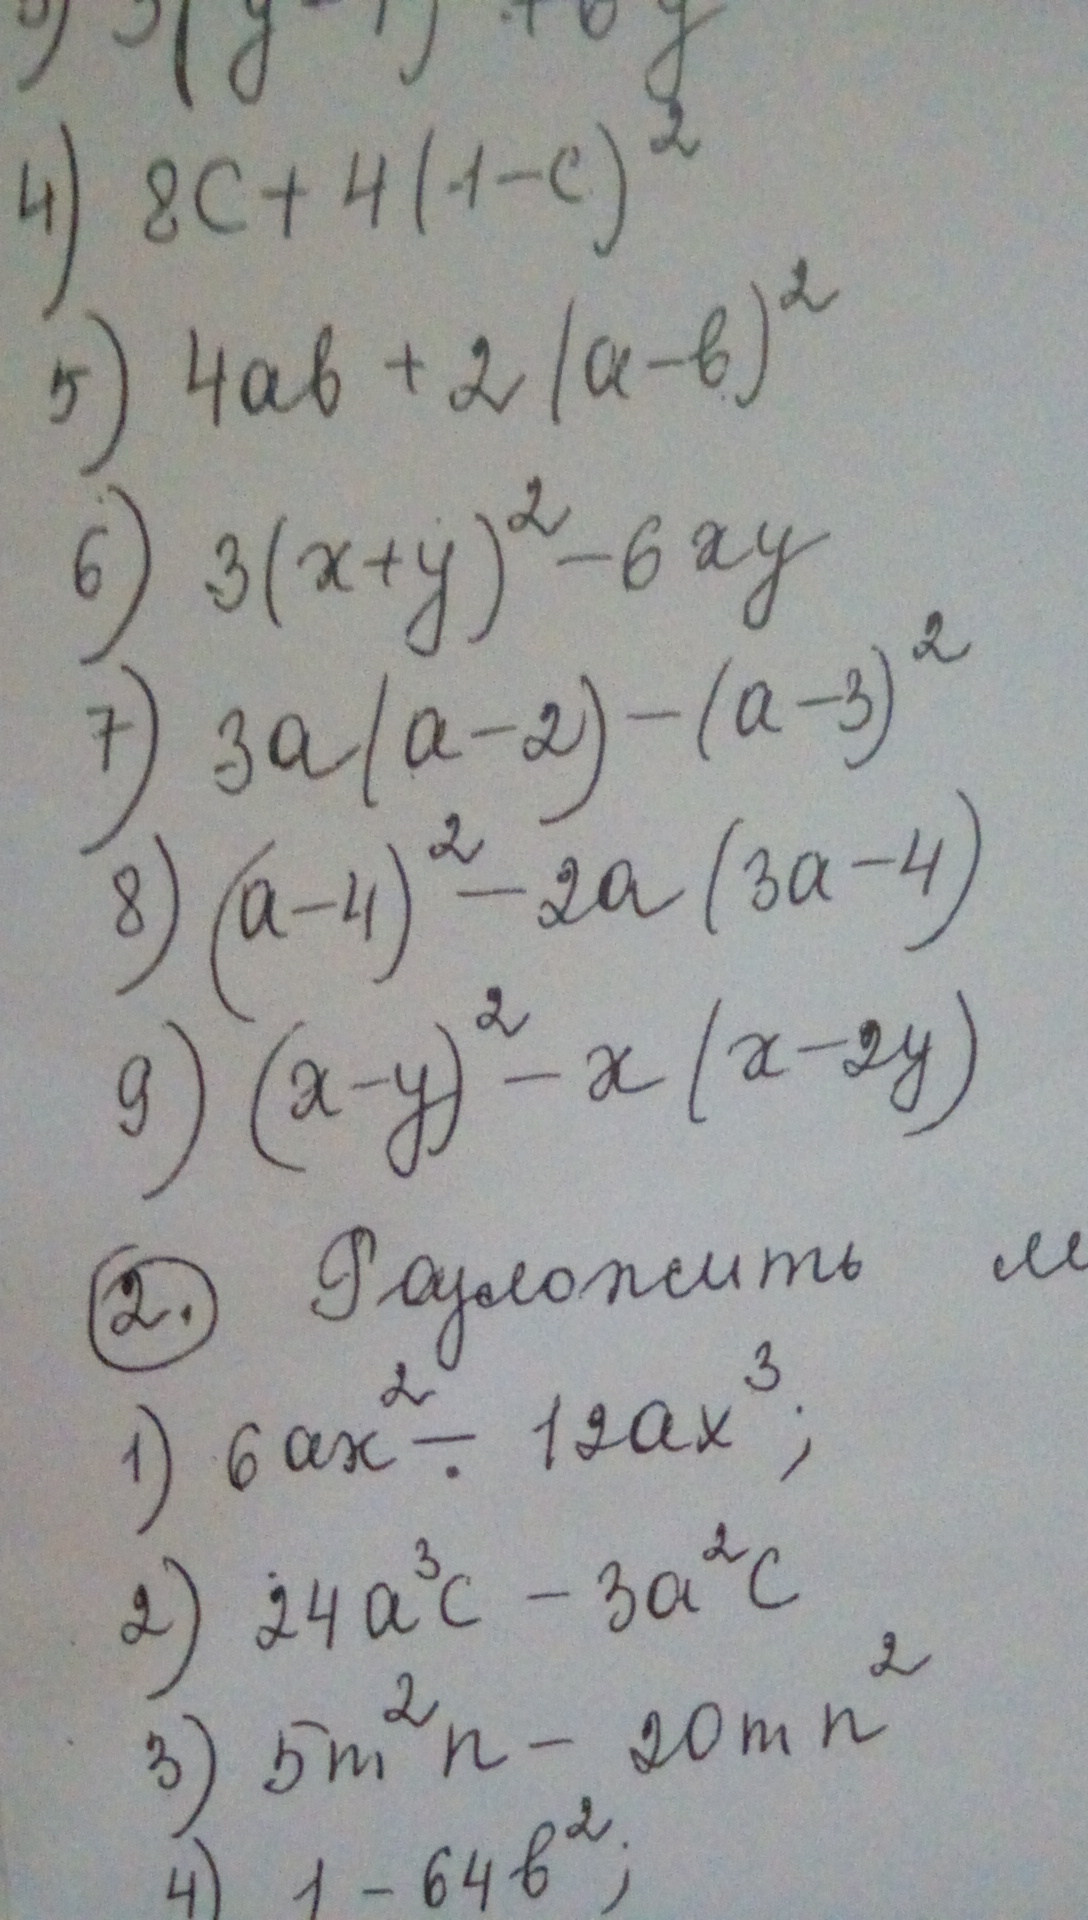 4) 8c + 4(1-c)²
5) 4ab + 2(a-b)²
6) 3(x+y)² - 6xy
7) 3a(a-2) - (a-3)²
8) (a-4)² - 2a(3a-4)
9) (x-y)² - x(x-2y)
2. Разложить
1) 6ax² - 12ax³;
2) 24a³c - 3a²c
3) 5m²n - 20mn²
4) 1 - 64b²;